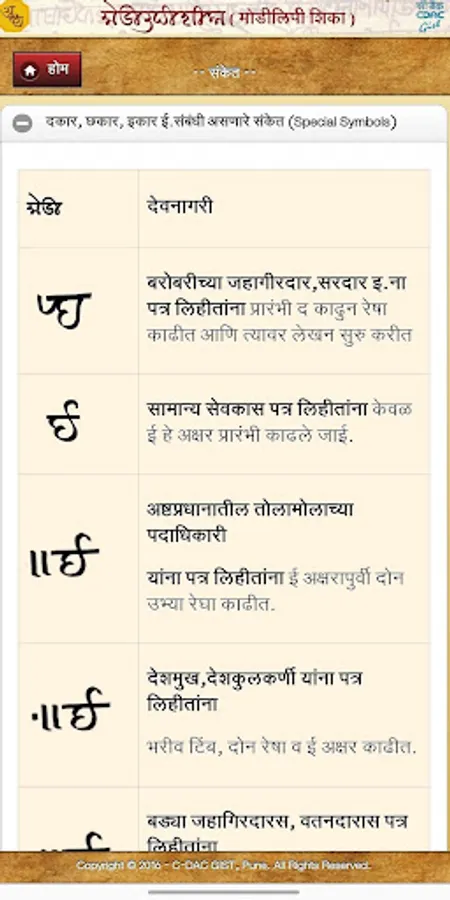 ( मोडीलिपी शिका )
होम
-- संकेत --
दकार, छकार, इकार ई.संबंधी असणारे संकेत (Special Symbols)
देवनागरी
बरोबरीच्या जहागीरदार,सरदार इ.ना
पत्र लिहीतांना प्रारंभी द काढुन रेषा
काढीत आणि त्यावर लेखन सुरु करीत
सामान्य सेवकास पत्र लिहीतांना केवळ
ई हे अक्षर प्रारंभी काढले जाई.
अष्टप्रधानातील तोलामोलाच्या
पदाधिकारी
यांना पत्र लिहीतांना ई अक्षरापुर्वी दोन
उभ्या रेघा काढीत.
देशमुख,देशकुलकर्णी यांना पत्र
लिहीतांना
भरीव टिंब, दोन रेषा व ई अक्षर काढीत.
बड्या जहागिरदारस, वतनदारास पत्र
लिहीतांना
Copyright © 2016 - C-DAC GIST, Pune. All Rights Reserved.